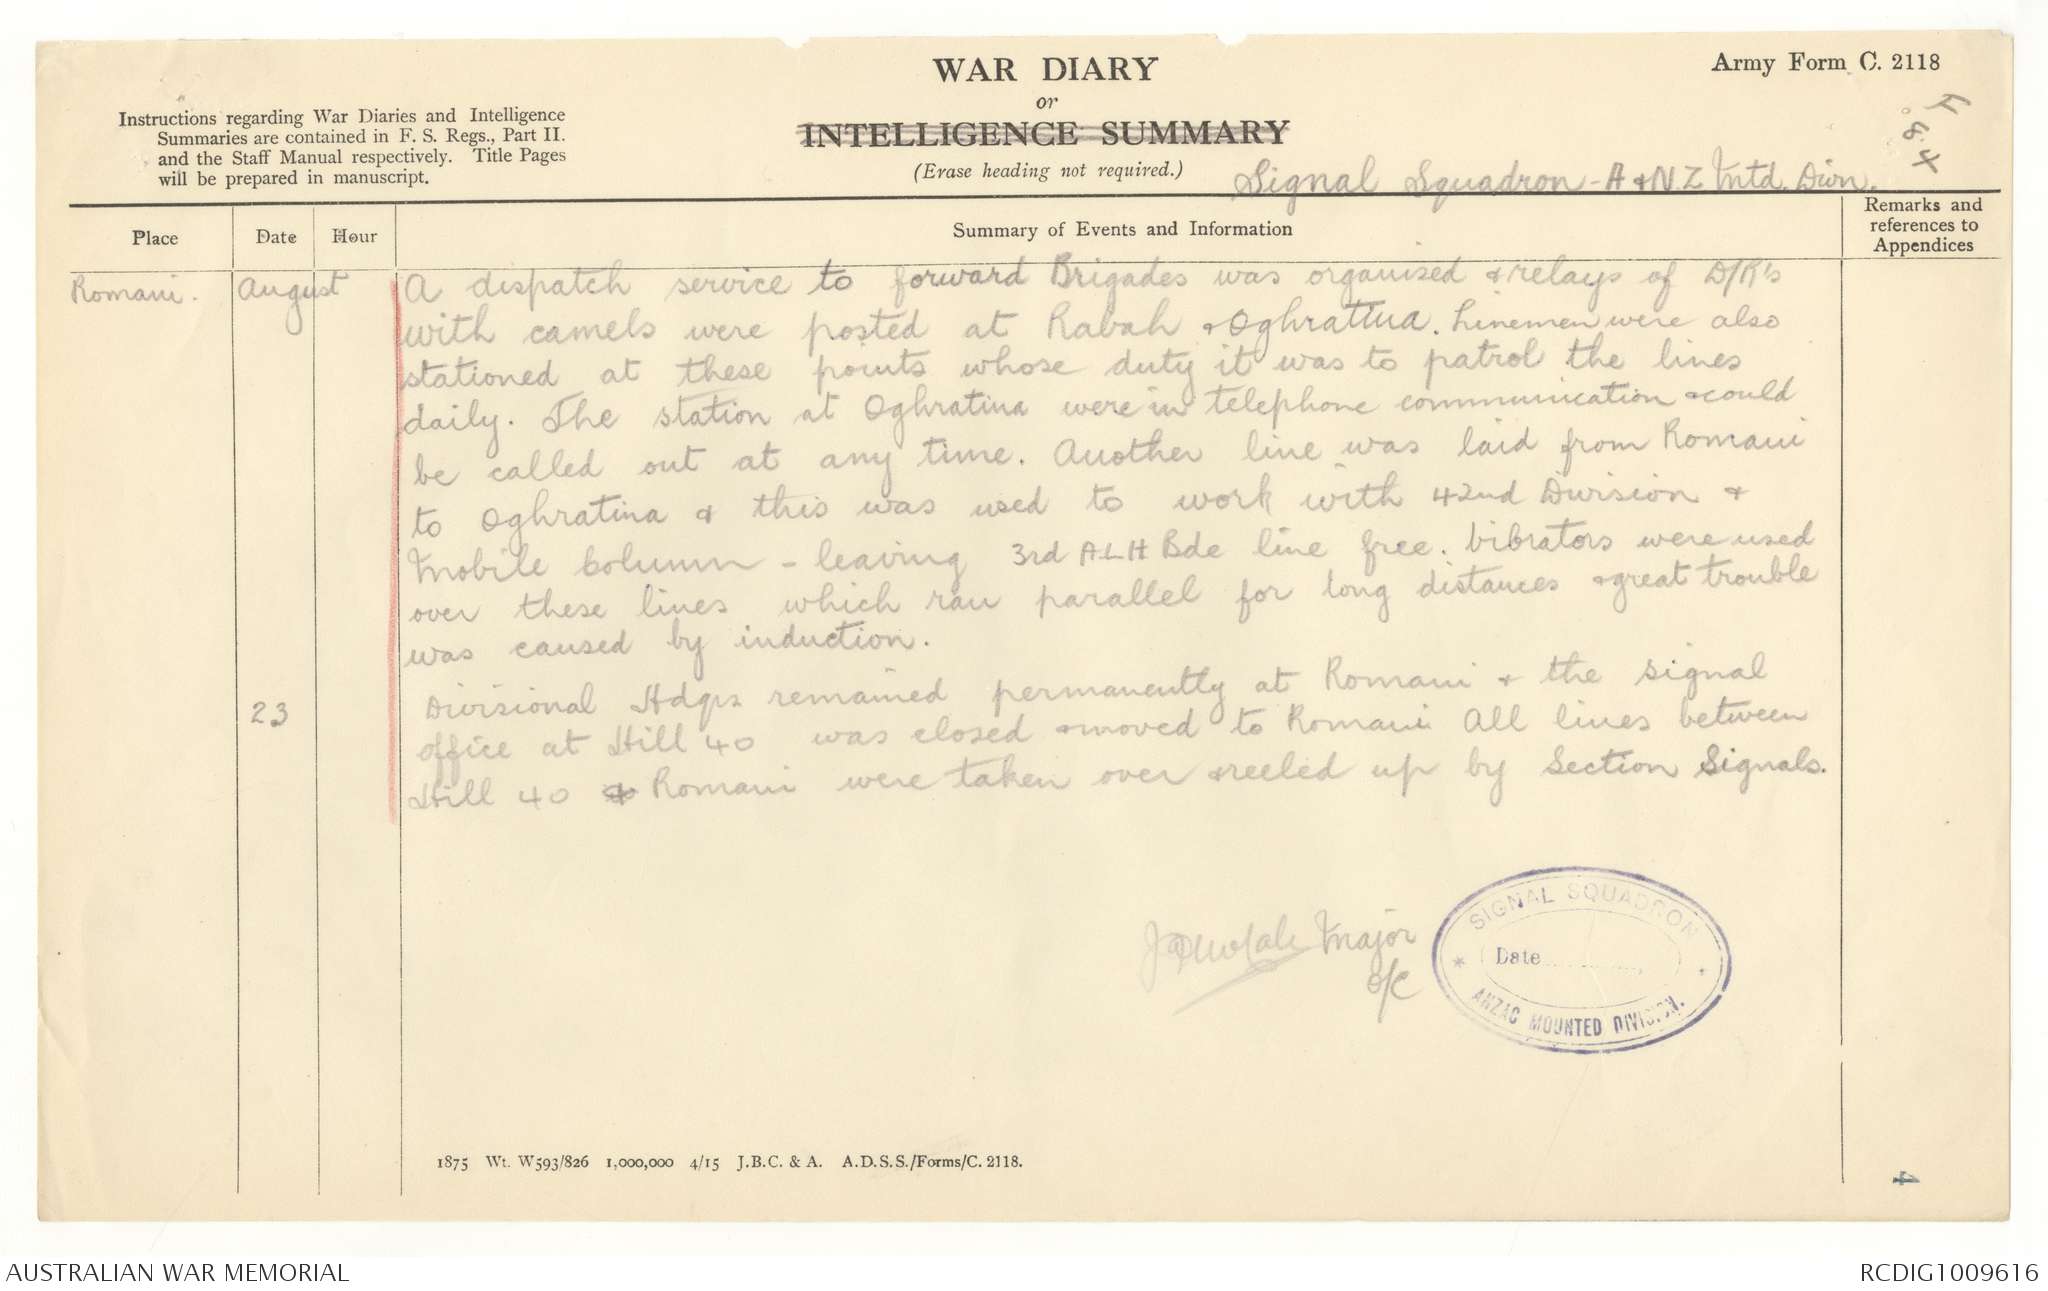 WAR DIARY
or
INTELLIGENCE SUMMARY
(Erase heading not required.)
Army Form C. 2118
Instructions regarding War Diaries and Intelligence
Summaries are contained in F. S. Regs., Part II.
and the Staff Manual respectively. Title Pages
will be prepared in manuscript.
Signal Squadron - A & N Z Mtd. Divn.
Place
Date
Hour
Summary of Events and Information
Remarks and
references to
Appendices
Romani.
August
A dispatch service to forward Brigades was organised & relays of D/R's
with camels were posted at Rabah & Oghratina. Linemen were also
stationed at these points whose duty it was to patrol the lines
daily. The station at Oghratina were in telephone communication & could
be called out at any time. Another line was laid from Romani
to Oghratina & this was used to work with 42nd Division &
Mobile Column - leaving 3rd A L H Bde line free. Vibrators were used
over these lines which ran parallel for long distances & great trouble
was caused by induction.
23
Divisional Hdqrs remained permanently at Romani & the signal
office at Hill 40 was closed & moved to Romani All lines between
Hill 40 & Romani were taken over & reeled up by Section Signals.
Major
O/C
SIGNAL SQUADRON
Date
ANZAC MOUNTED DIVISION.
1875 Wt. W593/826 1,000,000 4/15 J.B.C. & A. A.D.S.S./Forms/C. 2118.
4
AUSTRALIAN WAR MEMORIAL
RCDIG1009616